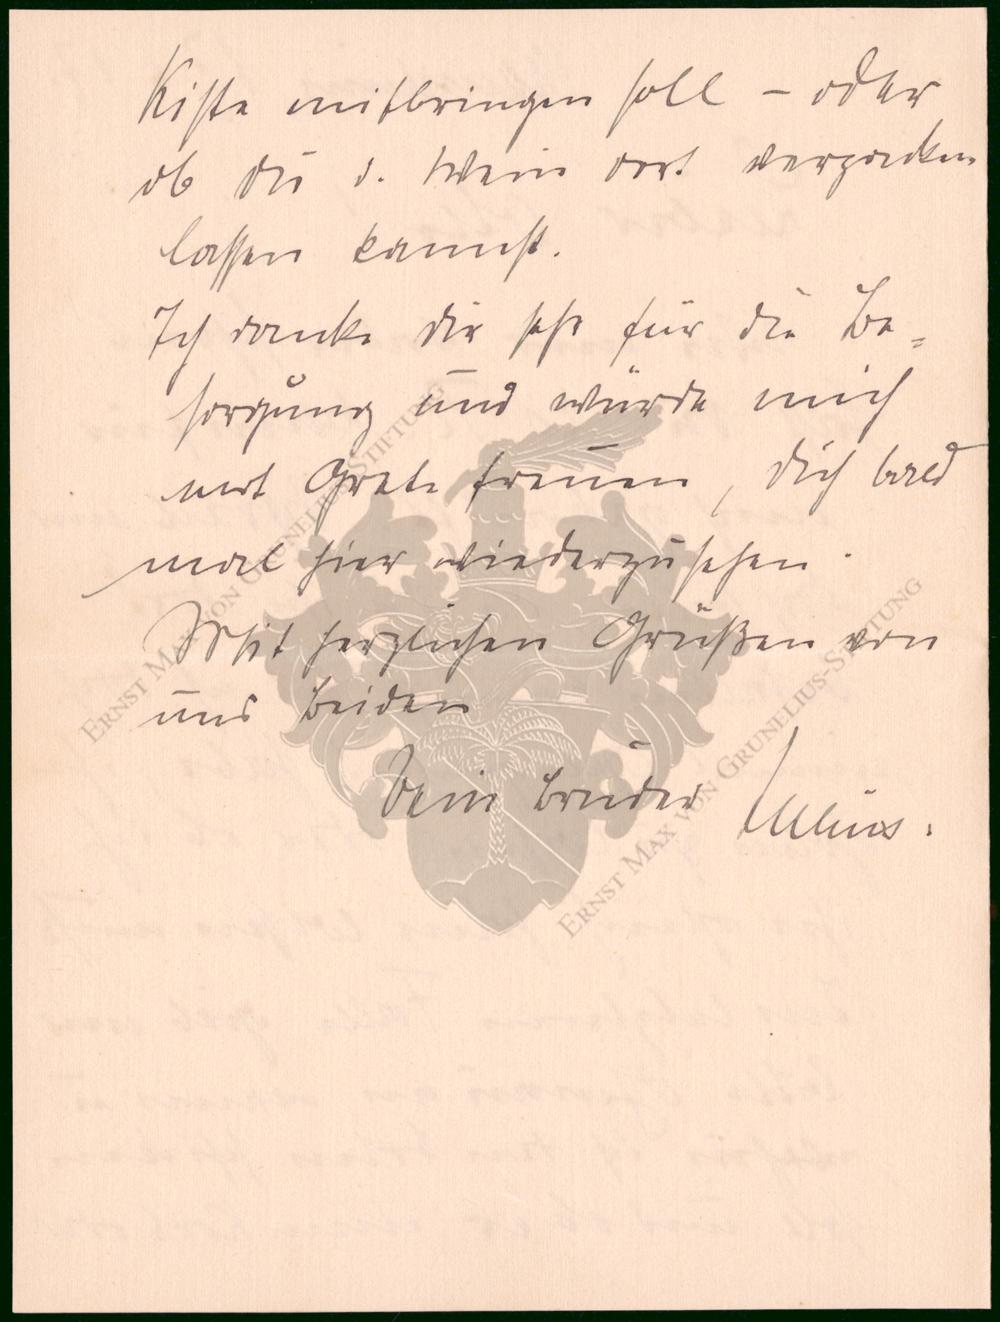 Kiste mitbringen soll – oder
ob du d. Wein dort verpacken
lassen kannst.
Ich danke dir sehr für die Be=
sorgung und würde mich
mit Grete freuen, dich bald
mal hier wiederzusehen.
Mit herzlichen Grüßen von
uns beiden
Dein Bruder
ERNST MAX VON GRUNELIUS-STIFTUNG
ERNST MAX VON GRUNELIUS-STIFTUNG